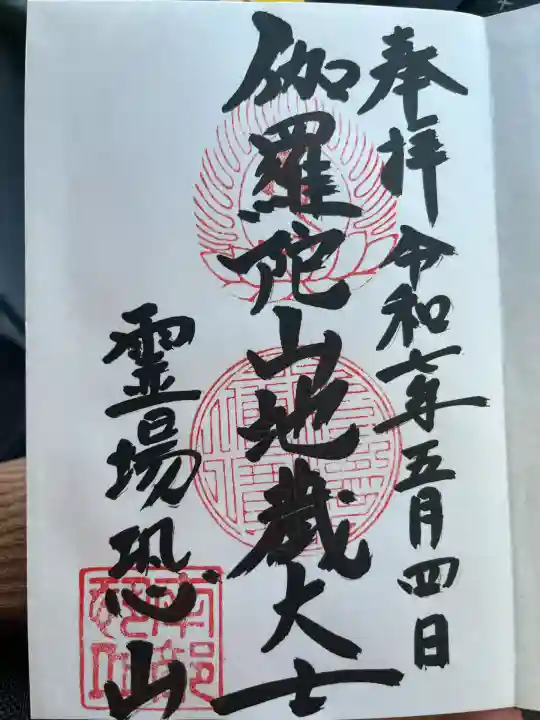 奉拝 令和七年五月四日
伽羅陀山地蔵大士
霊場恐山